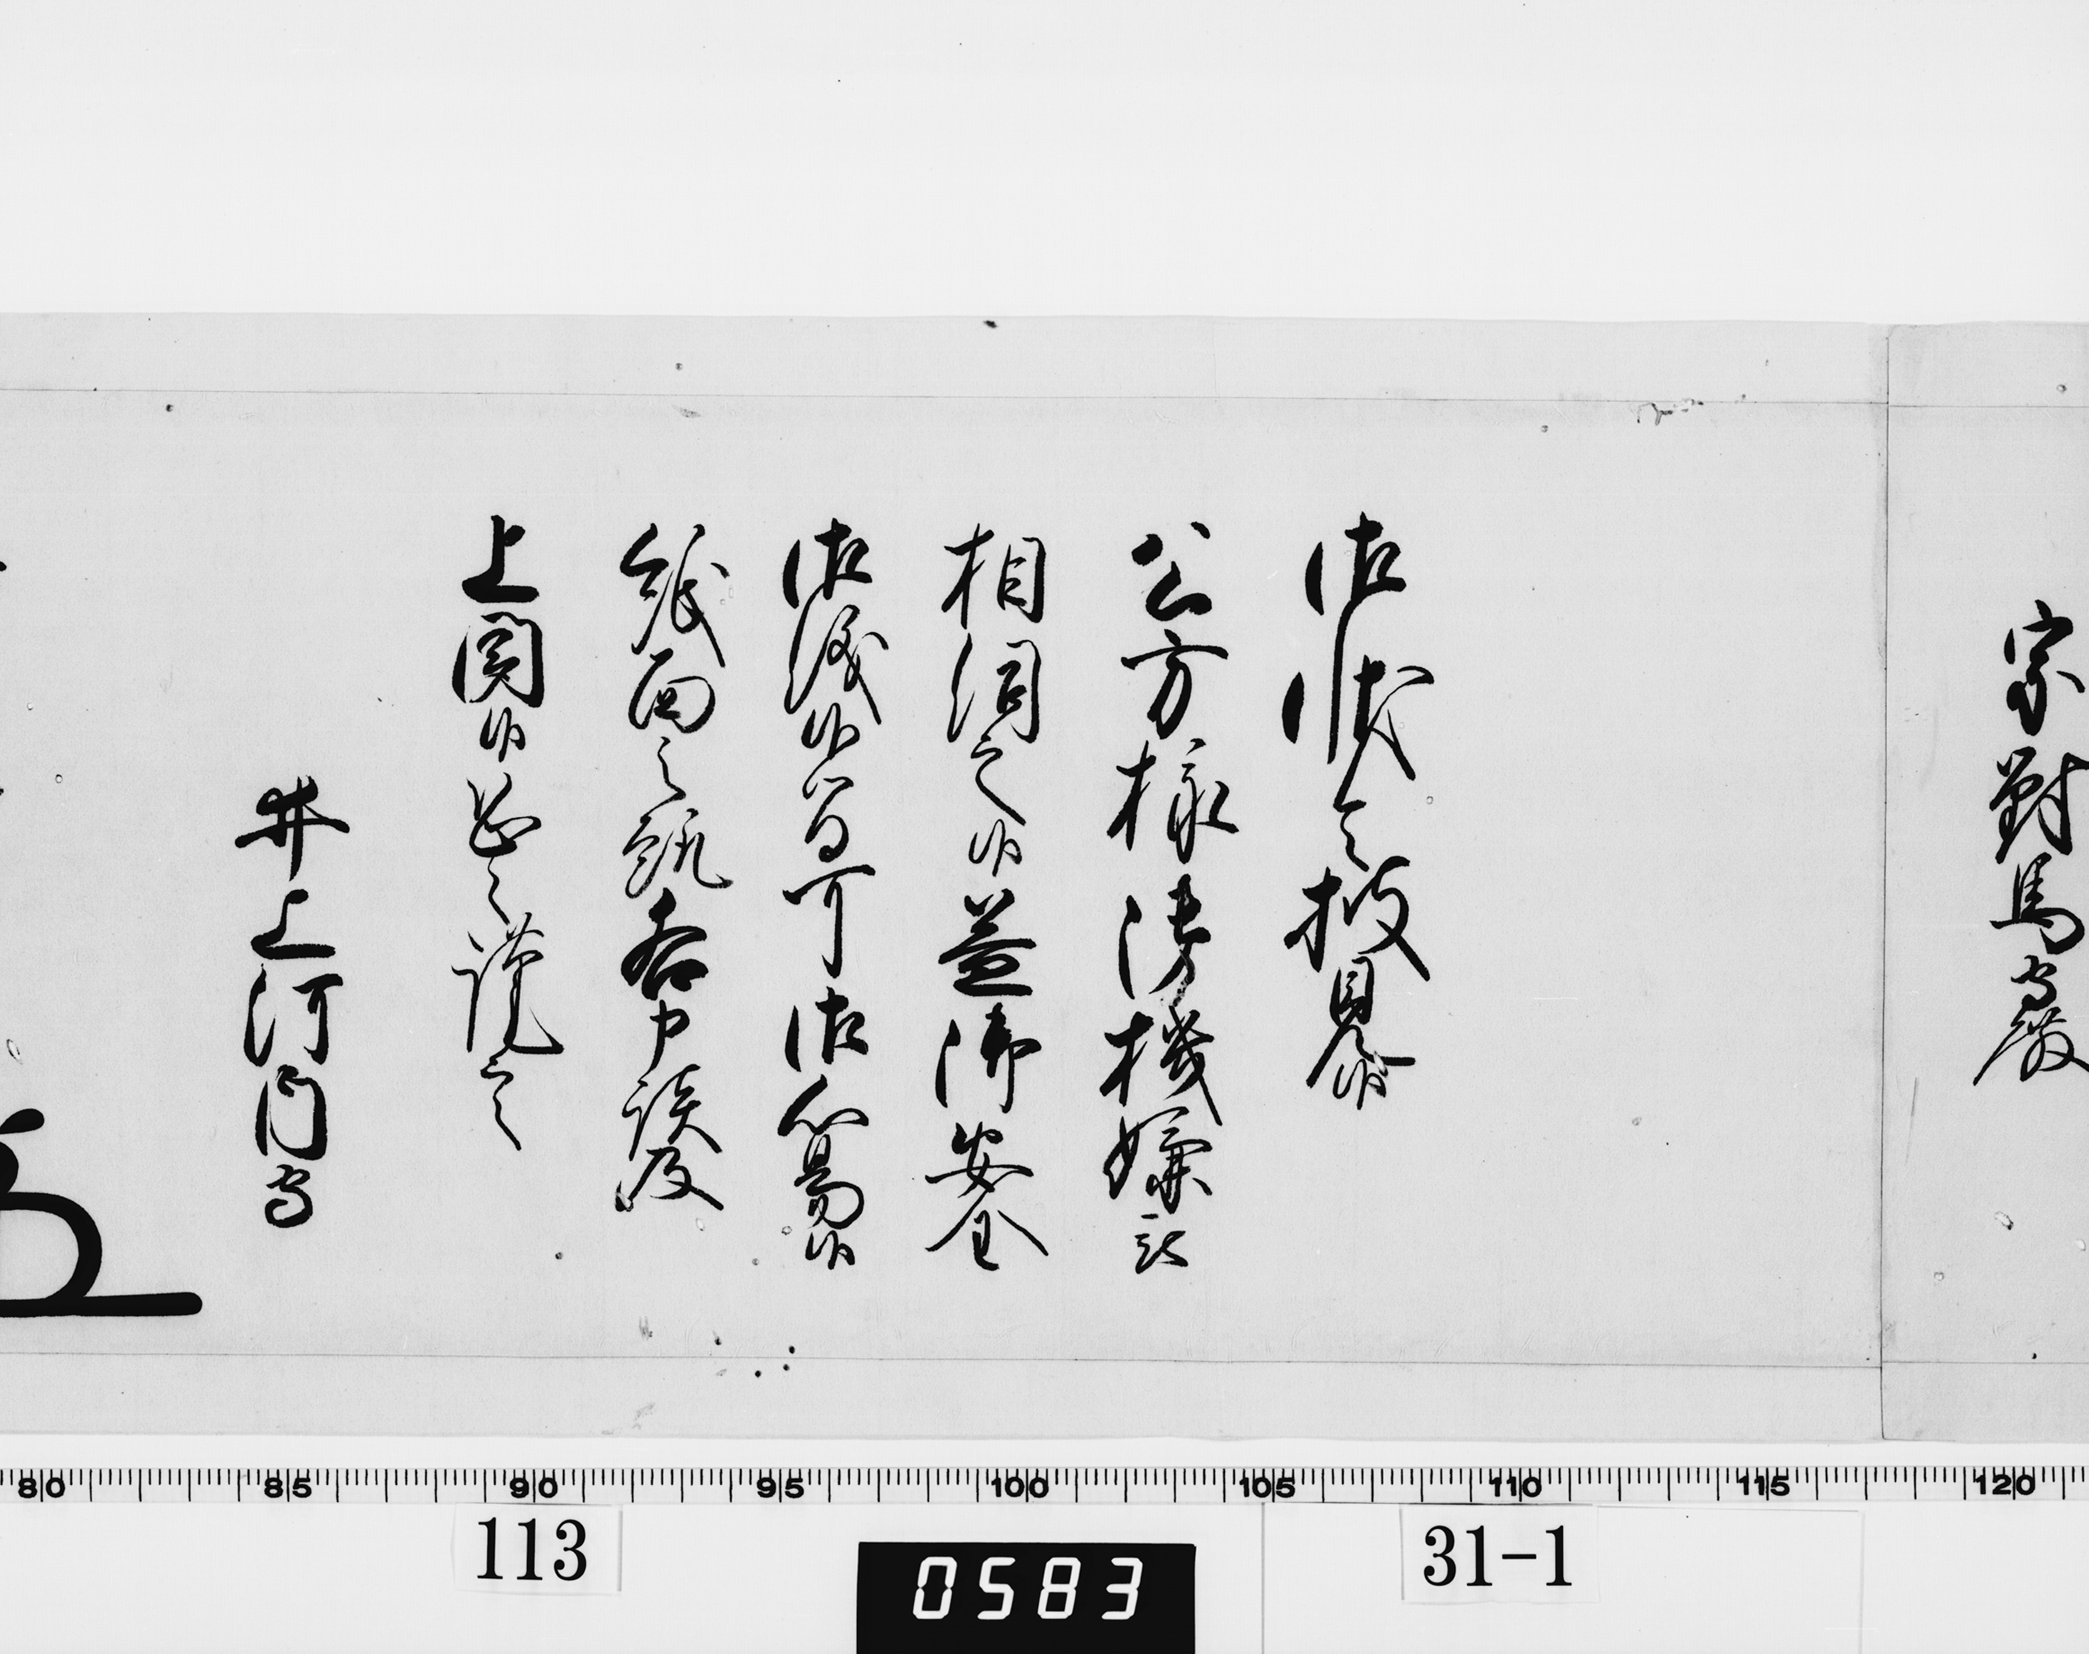 宗對馬守殿
御状令披見候
公方様御機嫌被
相伺之候益御安全
御儀候間可御心易候
紙面之趣各申談及
上聞候恐々謹言
井上河内守
80 85 90 95 100 105 110 115 120
113
0583
31-1